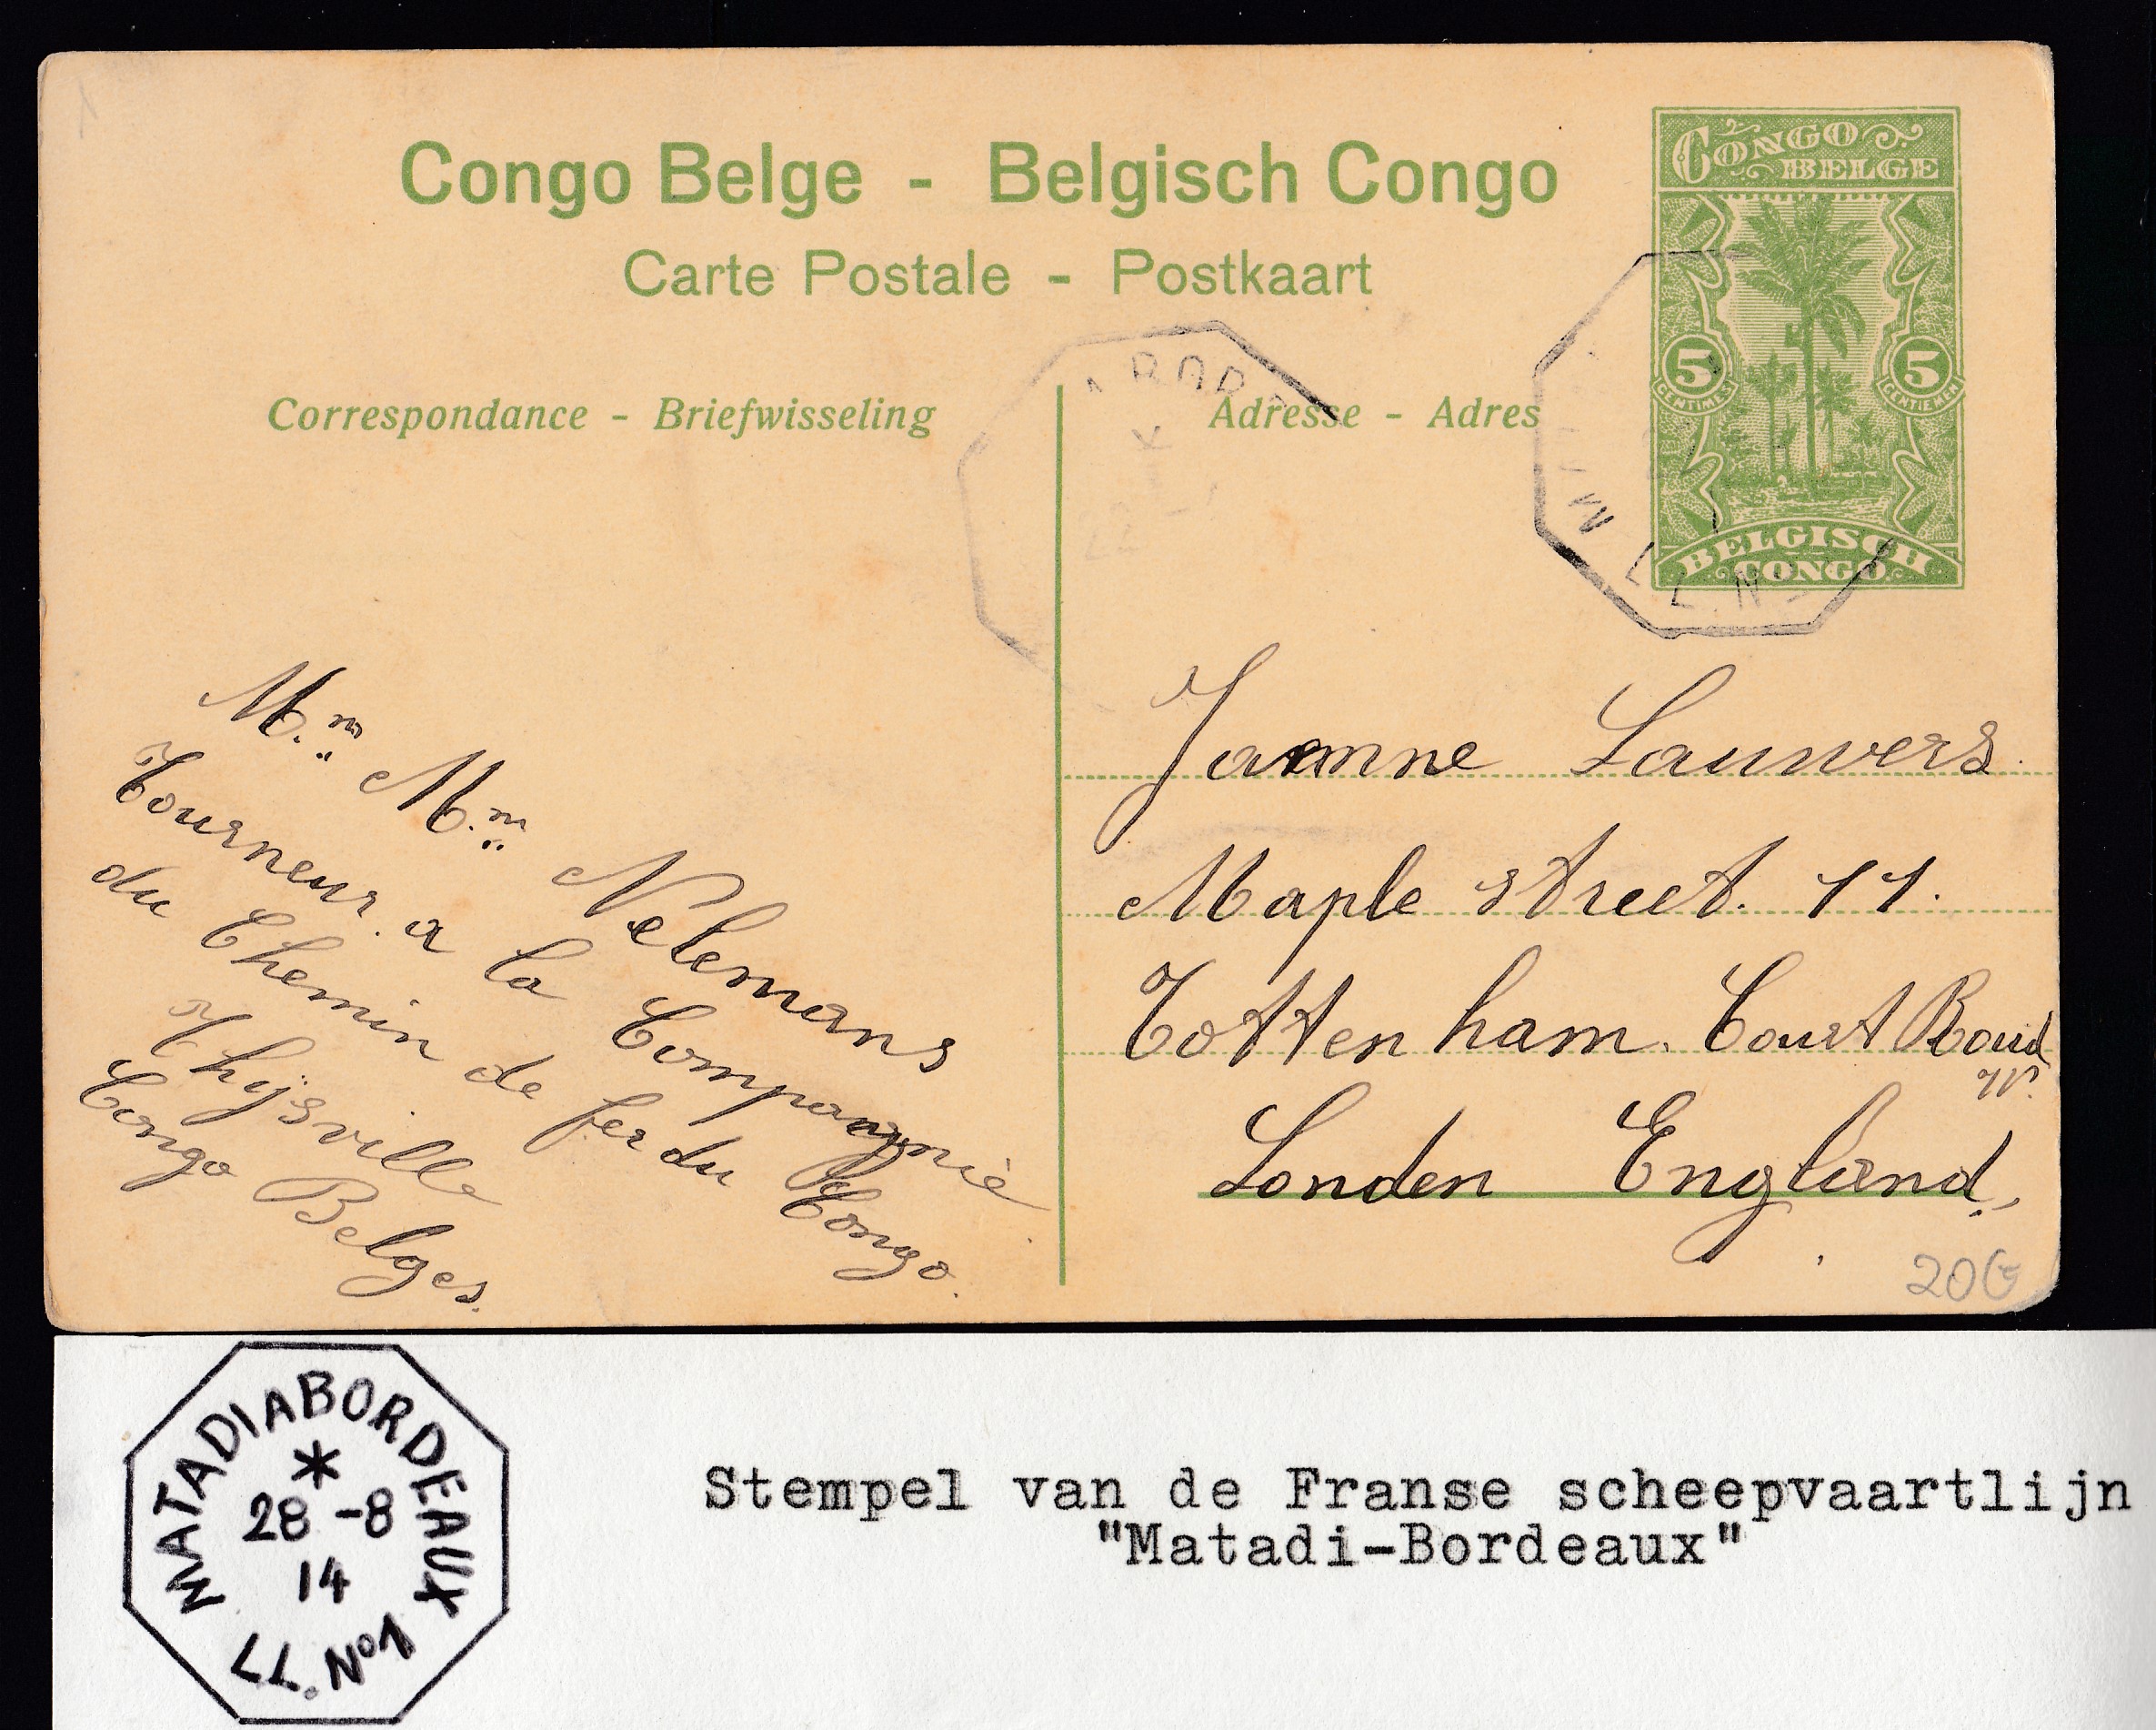 Congo Belge - Belgisch Congo
Carte Postale - Postkaart
CONGO
BELGE
5 5
CENTIMES CENTIEMEN
BELGISCH
CONGO
Correspondance - Briefwisseling
Adresse - Adres
22
L L. N
M.m M.m Nelemans
Tourneur. a la Compagnie
du Chemin de fer du Congo.
Thijsville
Congo Belges.
Jeanne Lauwers.
Maple street. 11.
Tottenham. Court Road
W.
Londen England.
20€
MATADI A BORDEAUX
*
28 -8
14
LL. Nº1
Stempel van de Franse scheepvaartlijn
"Matadi-Bordeaux"